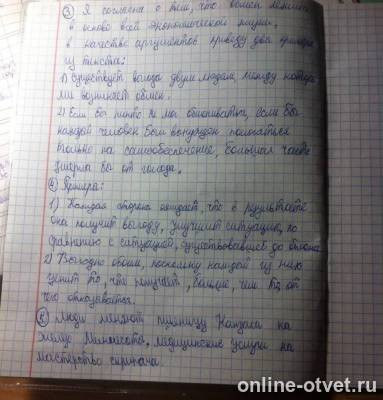 ③ Я согласна с тем, что обмен лежит
в основе всей экономической жизни,
в качестве аргументов приведу два примера
из текста:
1) существует выгода двум людям, между которы
ми возникает обмен.
2) Если бы никто не мог обмениваться, если бы
каждый человек был вынужден полагаться
только на самообеспечение, большая часть
умерла бы от голода.
④ Примера:
1) Каждая сторона ожидает, что в результате
она получит выгоду, улучшит ситуацию, по
сравнению с ситуацией, существовавшей до обмена
2) Выгодно обоим, поскольку каждый из них
ценит то, что получает, больше, чем то, от
чего отказывается.
Люди меняют пшеницу Канзаса на
железо Миннесоты, медицинские услуги на
мастерство скрипача.
online-otvet.ru